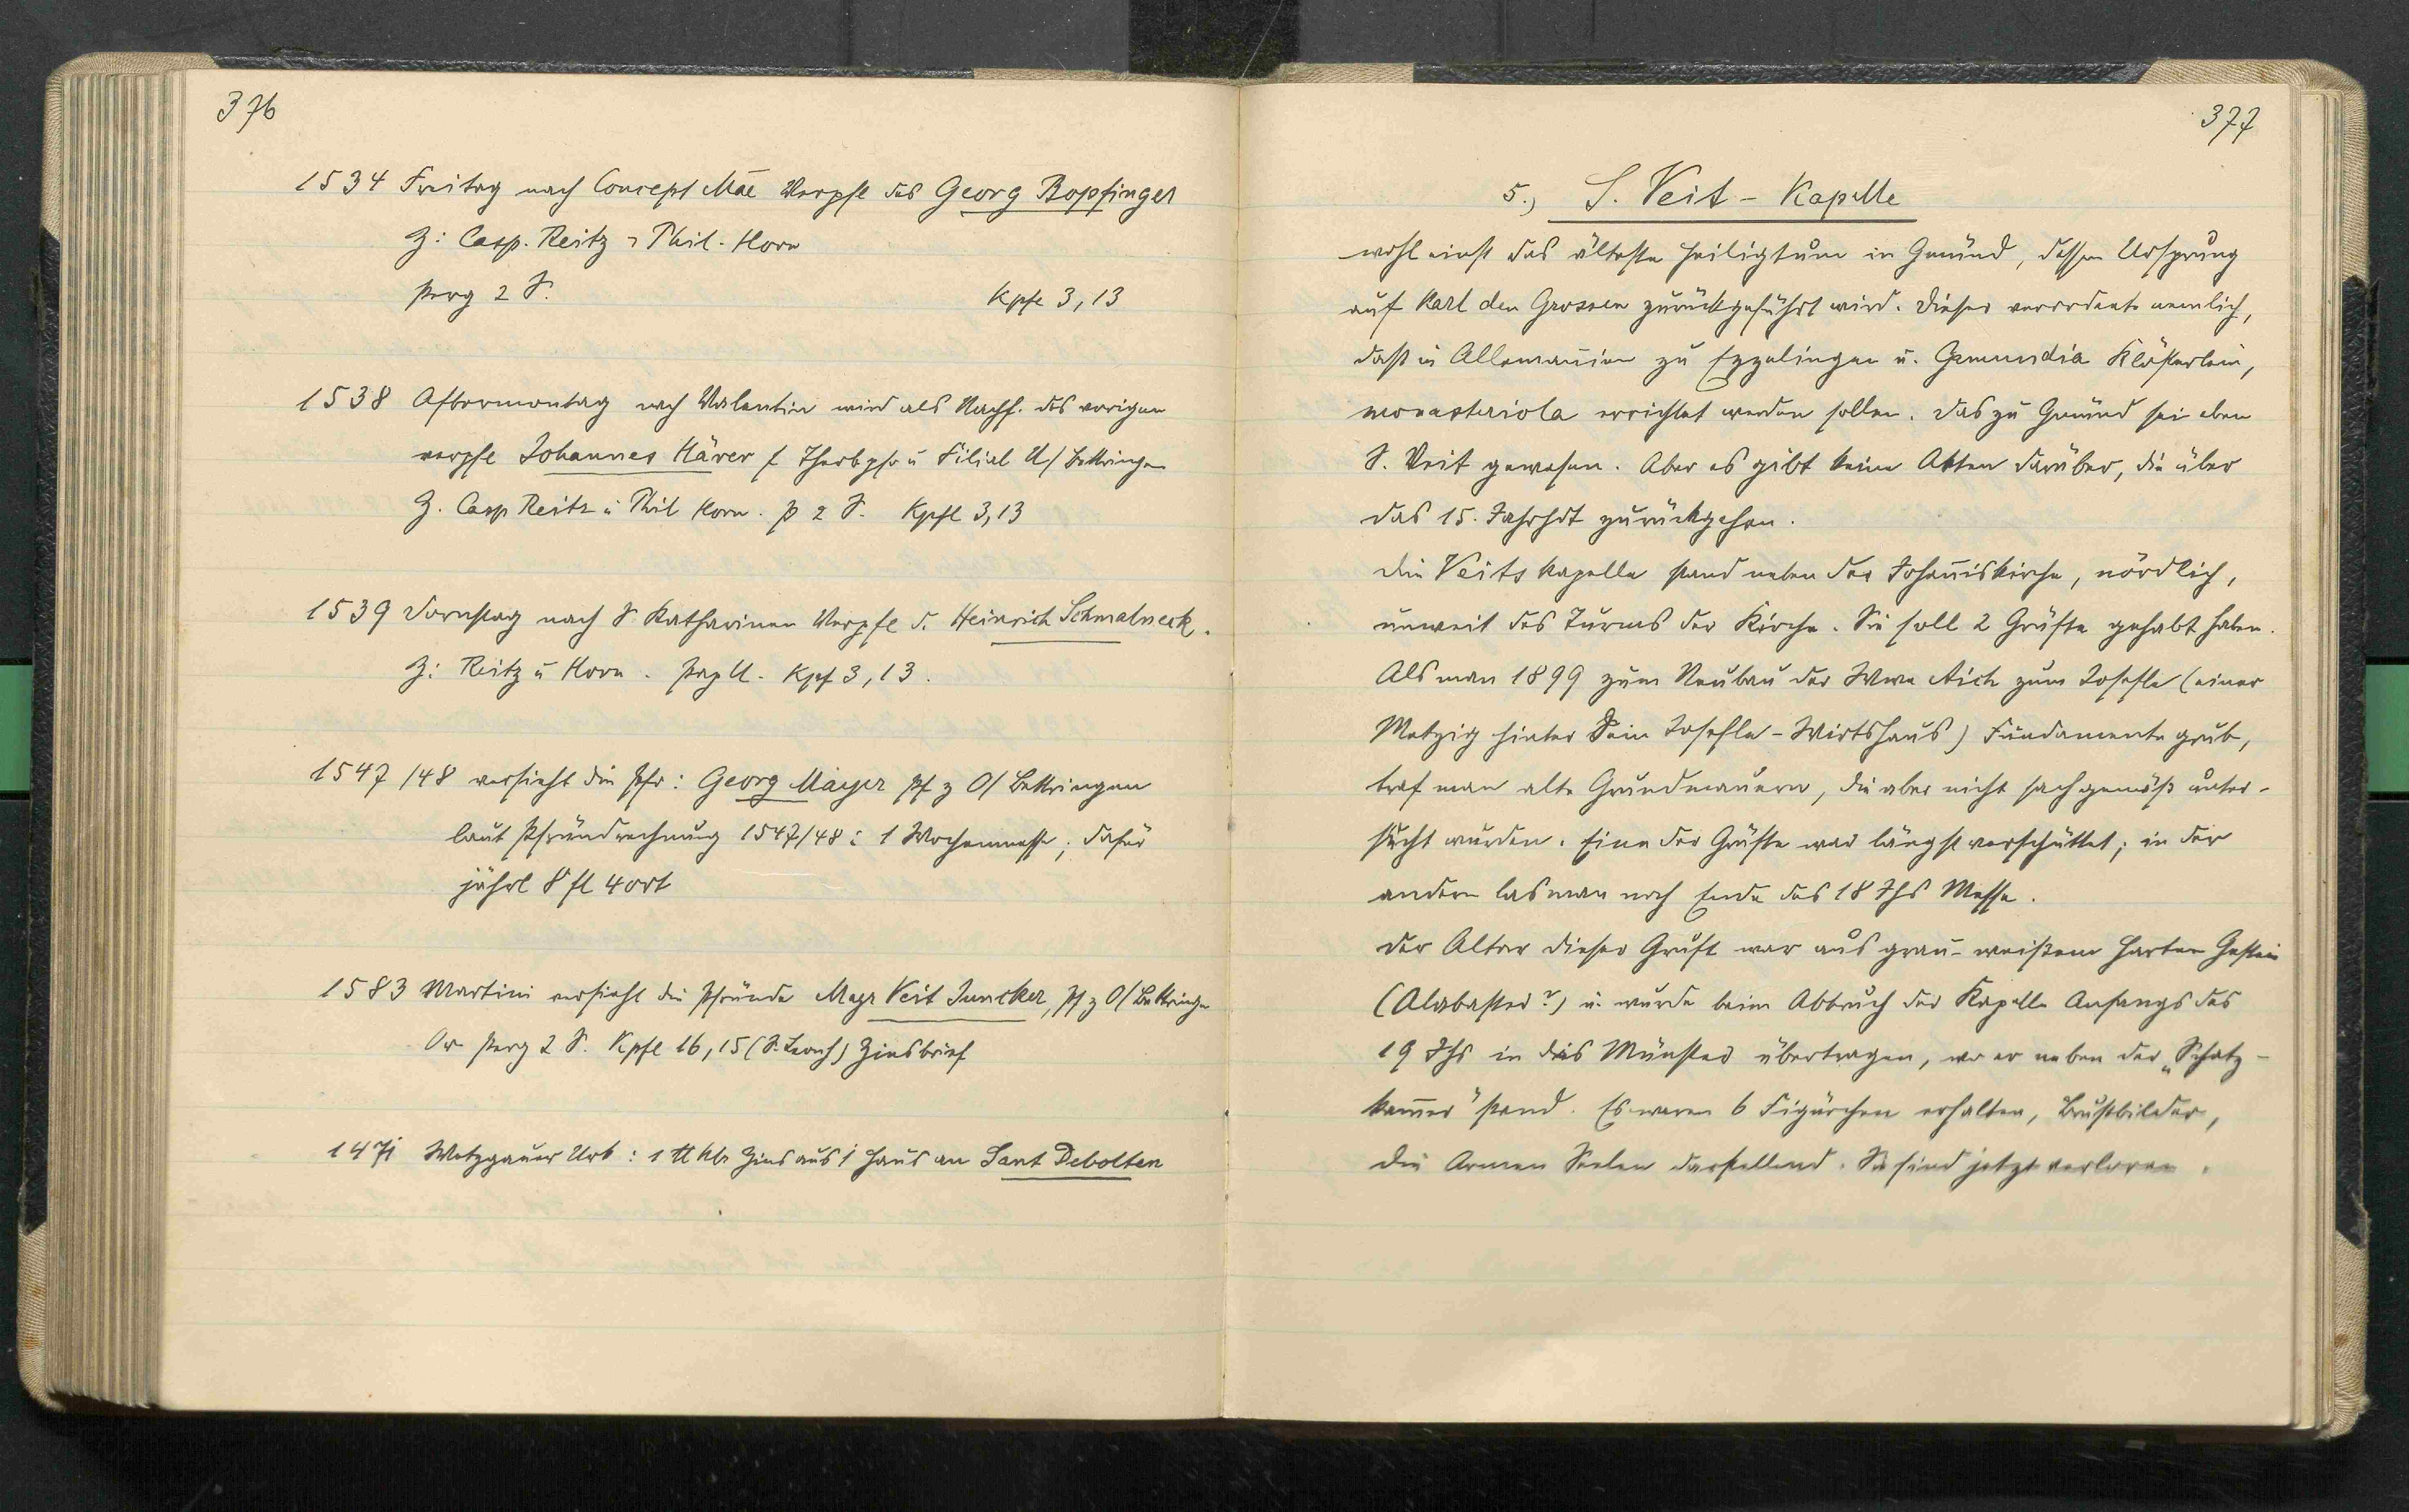 376
1534 Freitag nach Concept Mae Verpfl des Georg Bopfinger
Z: Casp. Reitz u Phil. Horn
Perg 2 S. Kpfl 3,13
1538 Aftermontag nach Valentin wird als Nachf. des vorigen
verpfl Johannes Härer f Theobpfr u Filial U/Bettringen
Z. Casp Reitz u Phil Horn. P 2 S. Kpfl 3,13
1539 Dornstag nach S. Katharinen Verpfl d. Heinrich Schmalneck.
Z: Reitz u Horn. Kpf 3,13.
1547/48 versieht die Pfr: Georg Mayer Pf z O/Bettringen
laut Pfründrechnung 1547/48: 1 Wochenmesse; dafür
jährl 8 fl 4 ort
1583 Martini versieht die Pfründe Magr Veit Juncker, Pf z O/Bettringen
Or Perg 2 S. Kpfl 16,15 (S. Leonh) Zinsbrief
1471 Wetzgauer Urb: 1 ℔ hlr Zins aus 1 Haus an Sant Debolten
377
5., S. Veit - Kapelle
wohl einst das älteste Heiligtum in Gmünd, dessen Ursprung
auf Karl den Grossen zurückgeführt wird. Dieser verordnete nemlich,
dass in Allemannien zu Ezzelingen u. Gemundia Klösterlein,
monasteriola errichtet werden sollen. Das zu Gmünd sei eben
S. Veit gewesen. Aber es gibt keine Akten darüber, die über
das 15. Jahrhdt zurückgehen.
Die Veitskapelle stand neben der Johanniskirche, nördlich,
unweit des Turms der Kirche. Sie soll 2 Grüfte gehabt haben.
Als man 1899 zum Neubau der Wwe Aich zum Josefle (einer
Metzig hinter dem Josefle-Wirtshaus) Fundamente grub,
traf man alte Grundmauern, die aber nicht sachgemäß unter-
sucht wurden. Eine der Grüfte war längst verschüttet; in der
andern las man noch Ende des 18 Jhs Messe.
Der Altar dieser Gruft war aus grau-weißem harten Gestein
(Alabaster?) u. wurde beim Abbruch der Kapelle Anfangs des
19 Jhs in das Münster übertragen, wo er neben der „Schatz-
kammer" stand. Es waren 6 Figürchen erhalten, Brustbilder,
die Armen Seelen darstellend. Sie sind jetzt verloren.